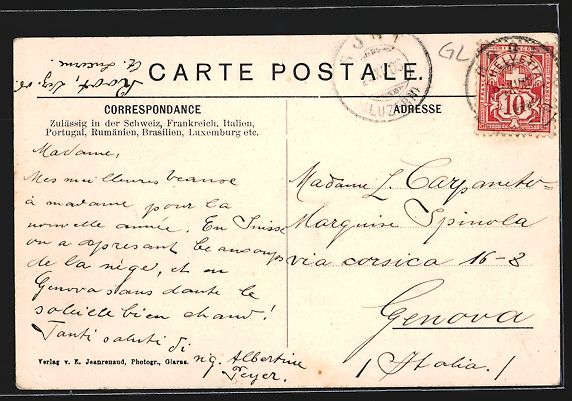 Root, Dez. 06.
Ct. Lucerne.
CARTE POSTALE.
GL
HELVETIA
10
(LUZERN)
CORRESPONDANCE
ADRESSE
Zulässig in der Schweiz, Frankreich, Italien,
Portugal, Rumänien, Brasilien, Luxemburg etc.
Madame,
Mes meilleures
à madame pour la
nouvelle année. En Suisse
on a apresant beaucoup
de la nége, et en
Genova sans doute le
soleille bien chaud!
Tanti saluti di
Albertine
Feyer.
Madame L. Carpaneto-
Marquise Spinola
via corsica 16-8
Genova
(Italia.)
Verlag v. E. Jeanrenaud, Photogr., Glarus.